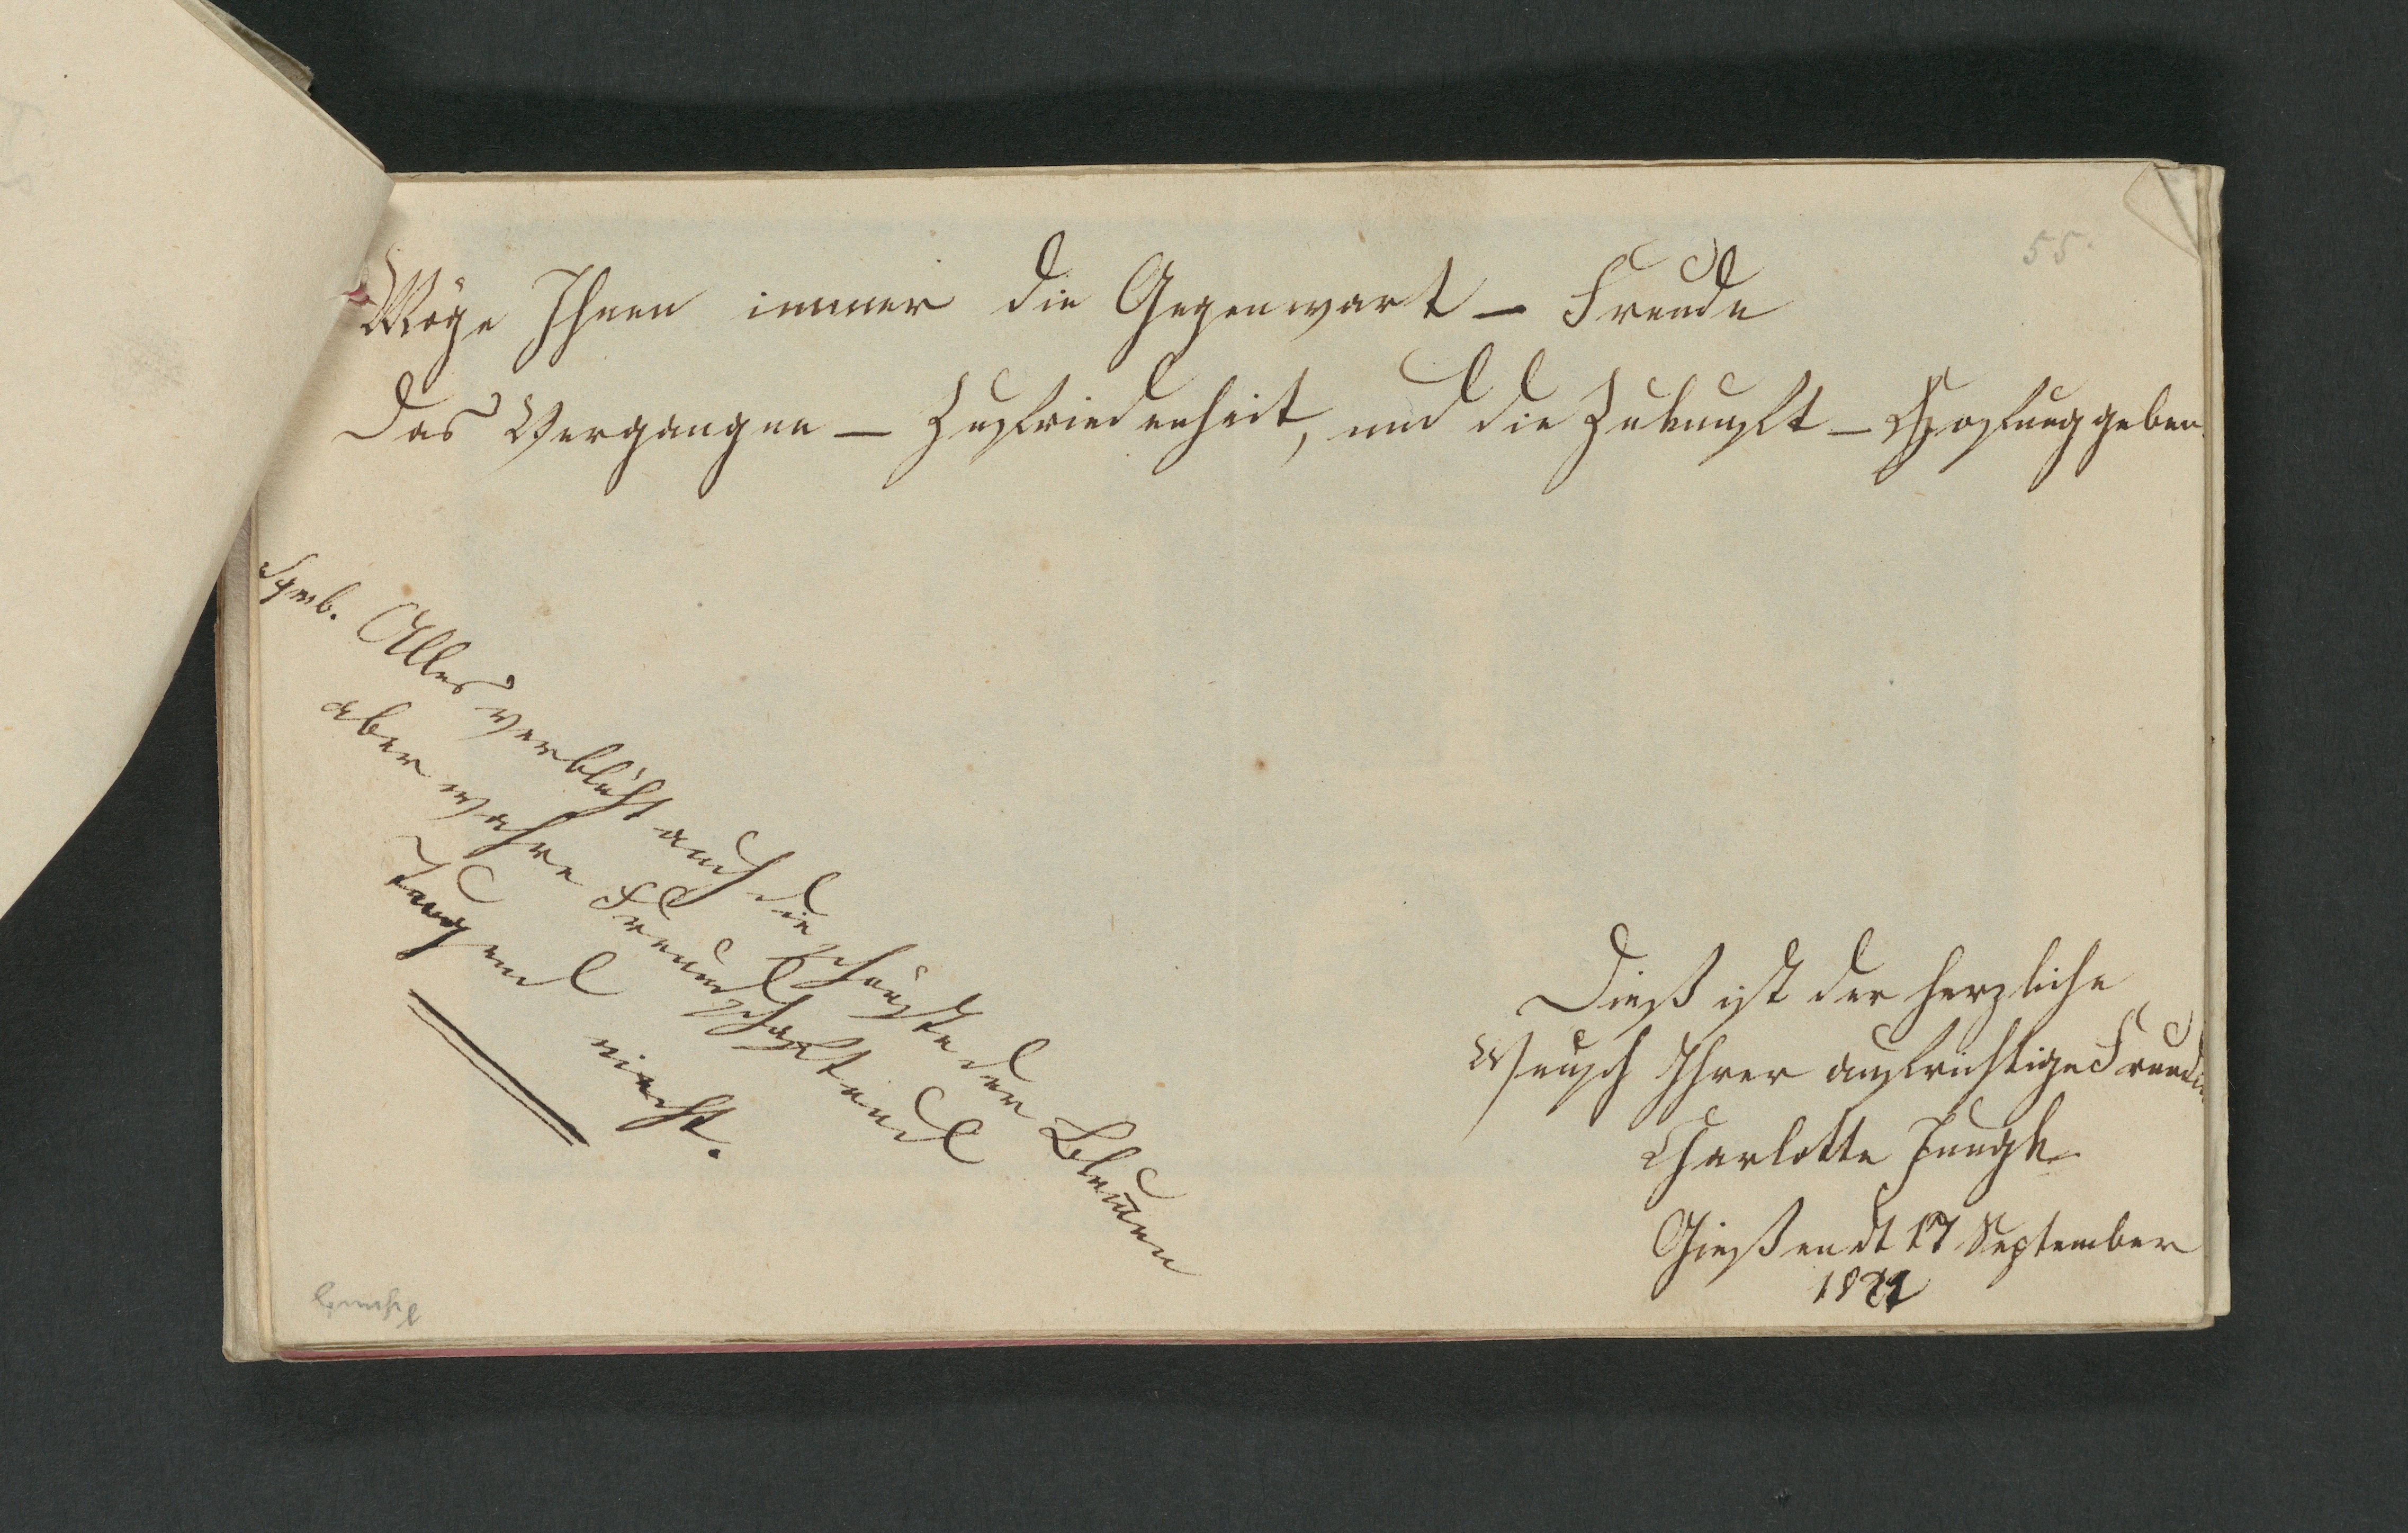 55.
Möge Ihnen immer die Gegenwart – Freude
das Vergangne – Zufriedenheit, und die Zukunft – Hofnung geben.
Symb. Alles verblüht auch die schönste der Blumen
aber wahre Freundschaft und
Tugend nicht.
Dieß ist der herzliche
Wunsch Ihrer aufrichtige Freundin
Charlotte Jungk
Gießen dt 17 September
1821